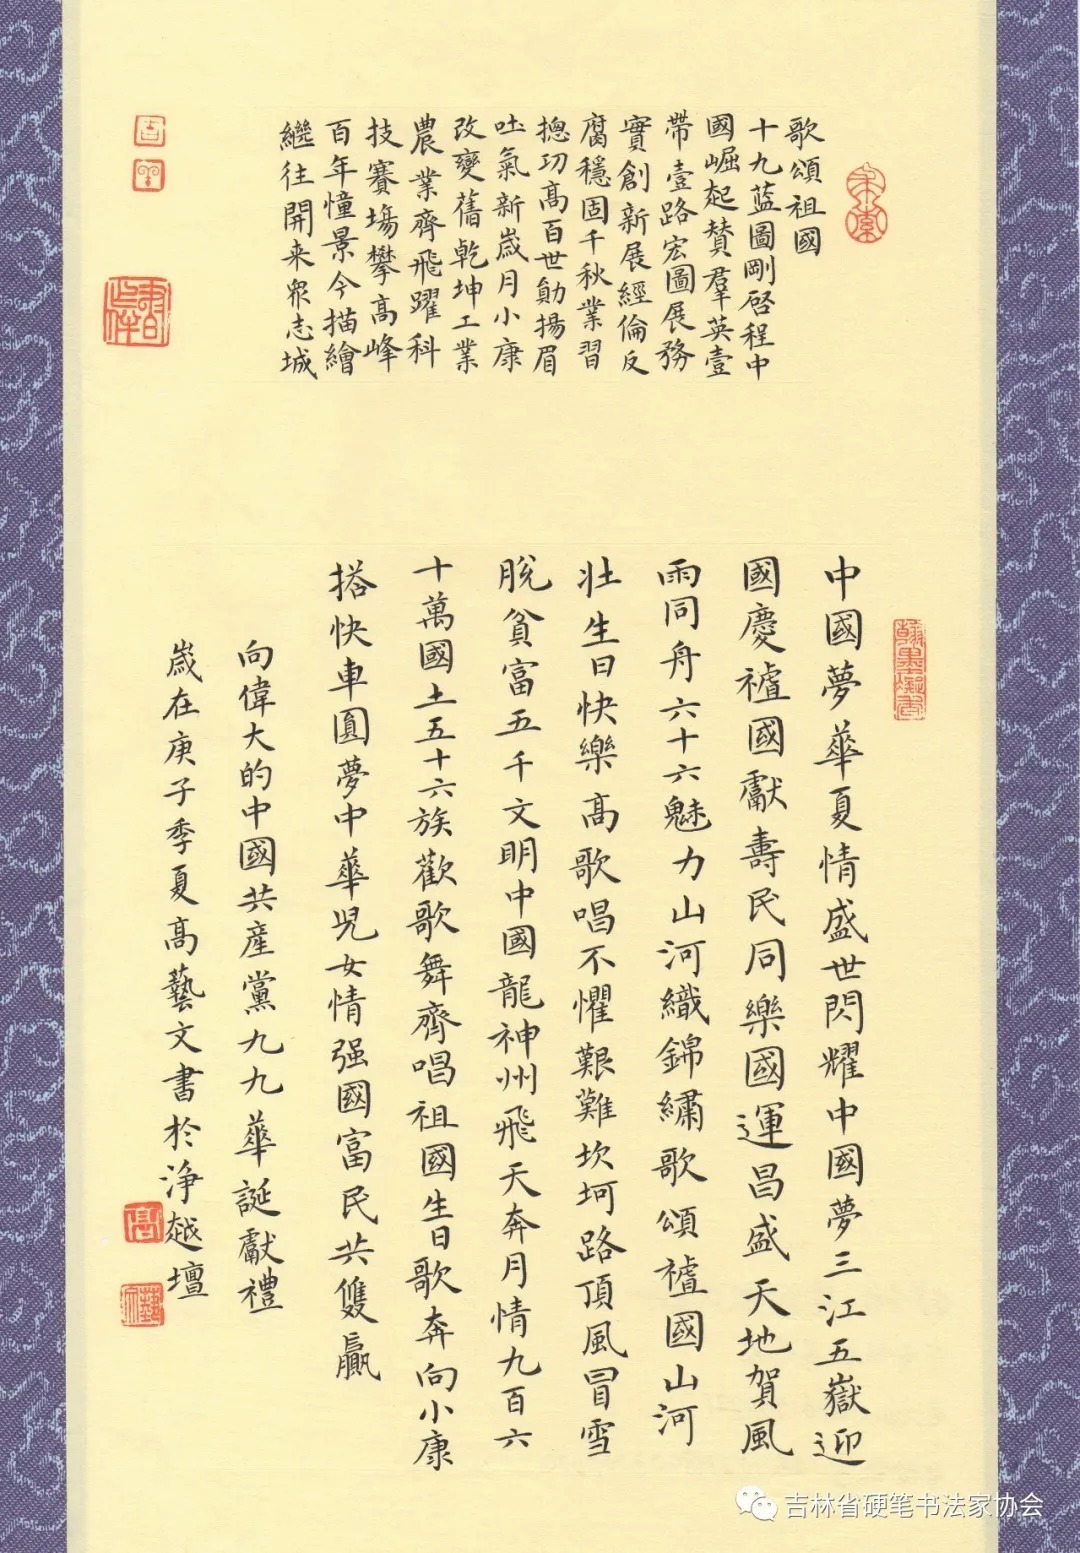 歌頌祖國
十九藍圖剛啓程中
國崛起贊羣英壹
帶壹路宏圖展務
實創新展經倫反
腐穩固千秋業習
摠功高百世勛揚眉
吐氣新歲月小康
改變舊乾坤工業
農業齊飛躍科
技賽塲攀高峰
百年憧景今描繪
繼往開来眾志城
中國夢華夏情盛世閃耀中國夢三江五嶽迎
國慶祖國獻壽民同樂國運昌盛天地賀風
雨同舟六十六魅力山河織錦繡歌頌祖國山河
壯生日快樂高歌唱不懼艱難坎坷路頂風冒雪
脫貧富五千文明中國龍神州飛天奔月情九百六
十萬國土五十六族歡歌舞齊唱祖國生日歌奔向小康
搭快車圓夢中華児女情强國富民共雙贏
向偉大的中國共產黨九九華誕獻禮
歲在庚子季夏高藝文書於淨越壇
翰墨凝香
高
吉林省硬笔书法家协会